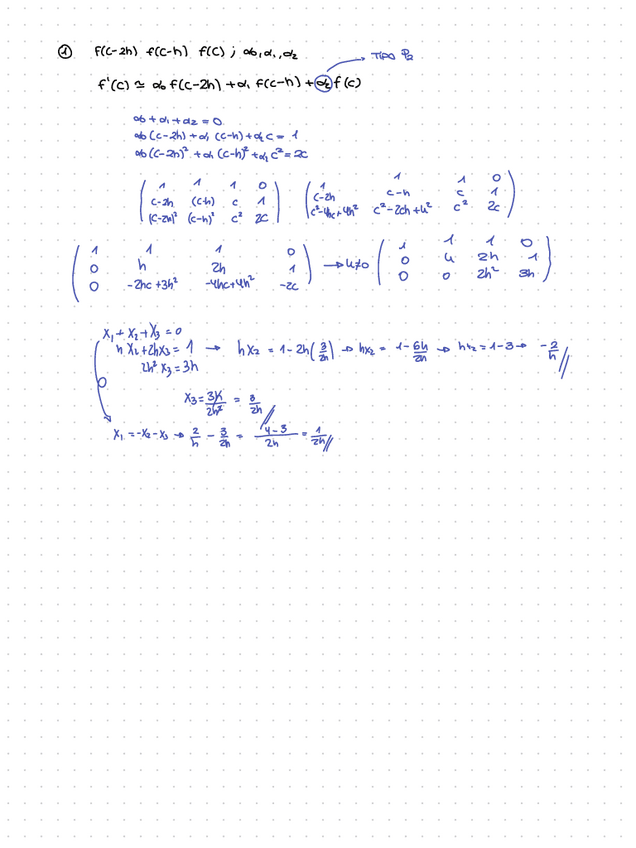 ① f(c-2h) f(c-h) f(c) ; α0, α1, α2
→ TIPO P2
f'(c) ≃ α0 f(c-2h) + α1 f(c-h) + α2 f(c)
α0 + α1 + α2 = 0
α0 (c-2h) + α1 (c-h) + α2 c = 1
α0 (c-2h)² + α1 (c-h)² + α2 c² = 2c
( 1 1 1 0 ) ( 1 1 1 0 )
( c-2h (c-h) c 1 ) ( c-2h c-h c 1 )
( (c-2h)² (c-h)² c² 2c ) ( c²-4hc+4h² c²-2ch+h² c² 2c )
( 1 1 1 0 ) ( 1 1 1 0 )
( 0 h 2h 1 ) → h≠0 ( 0 h 2h 1 )
( 0 -2hc+3h² -4hc+4h² -2c ) ( 0 0 2h² 3h )
x1 + x2 + x3 = 0
h x2 + 2h x3 = 1 → h x2 = 1 - 2h (3/2h) → h x2 = 1 - 6h/2h → h x2 = 1-3 → -2/h //
2h² x3 = 3h
x3 = 3h/2h² = 3/2h //
x1 = -x2 - x3 → 2/h - 3/2h = 4-3/2h = 1/2h //